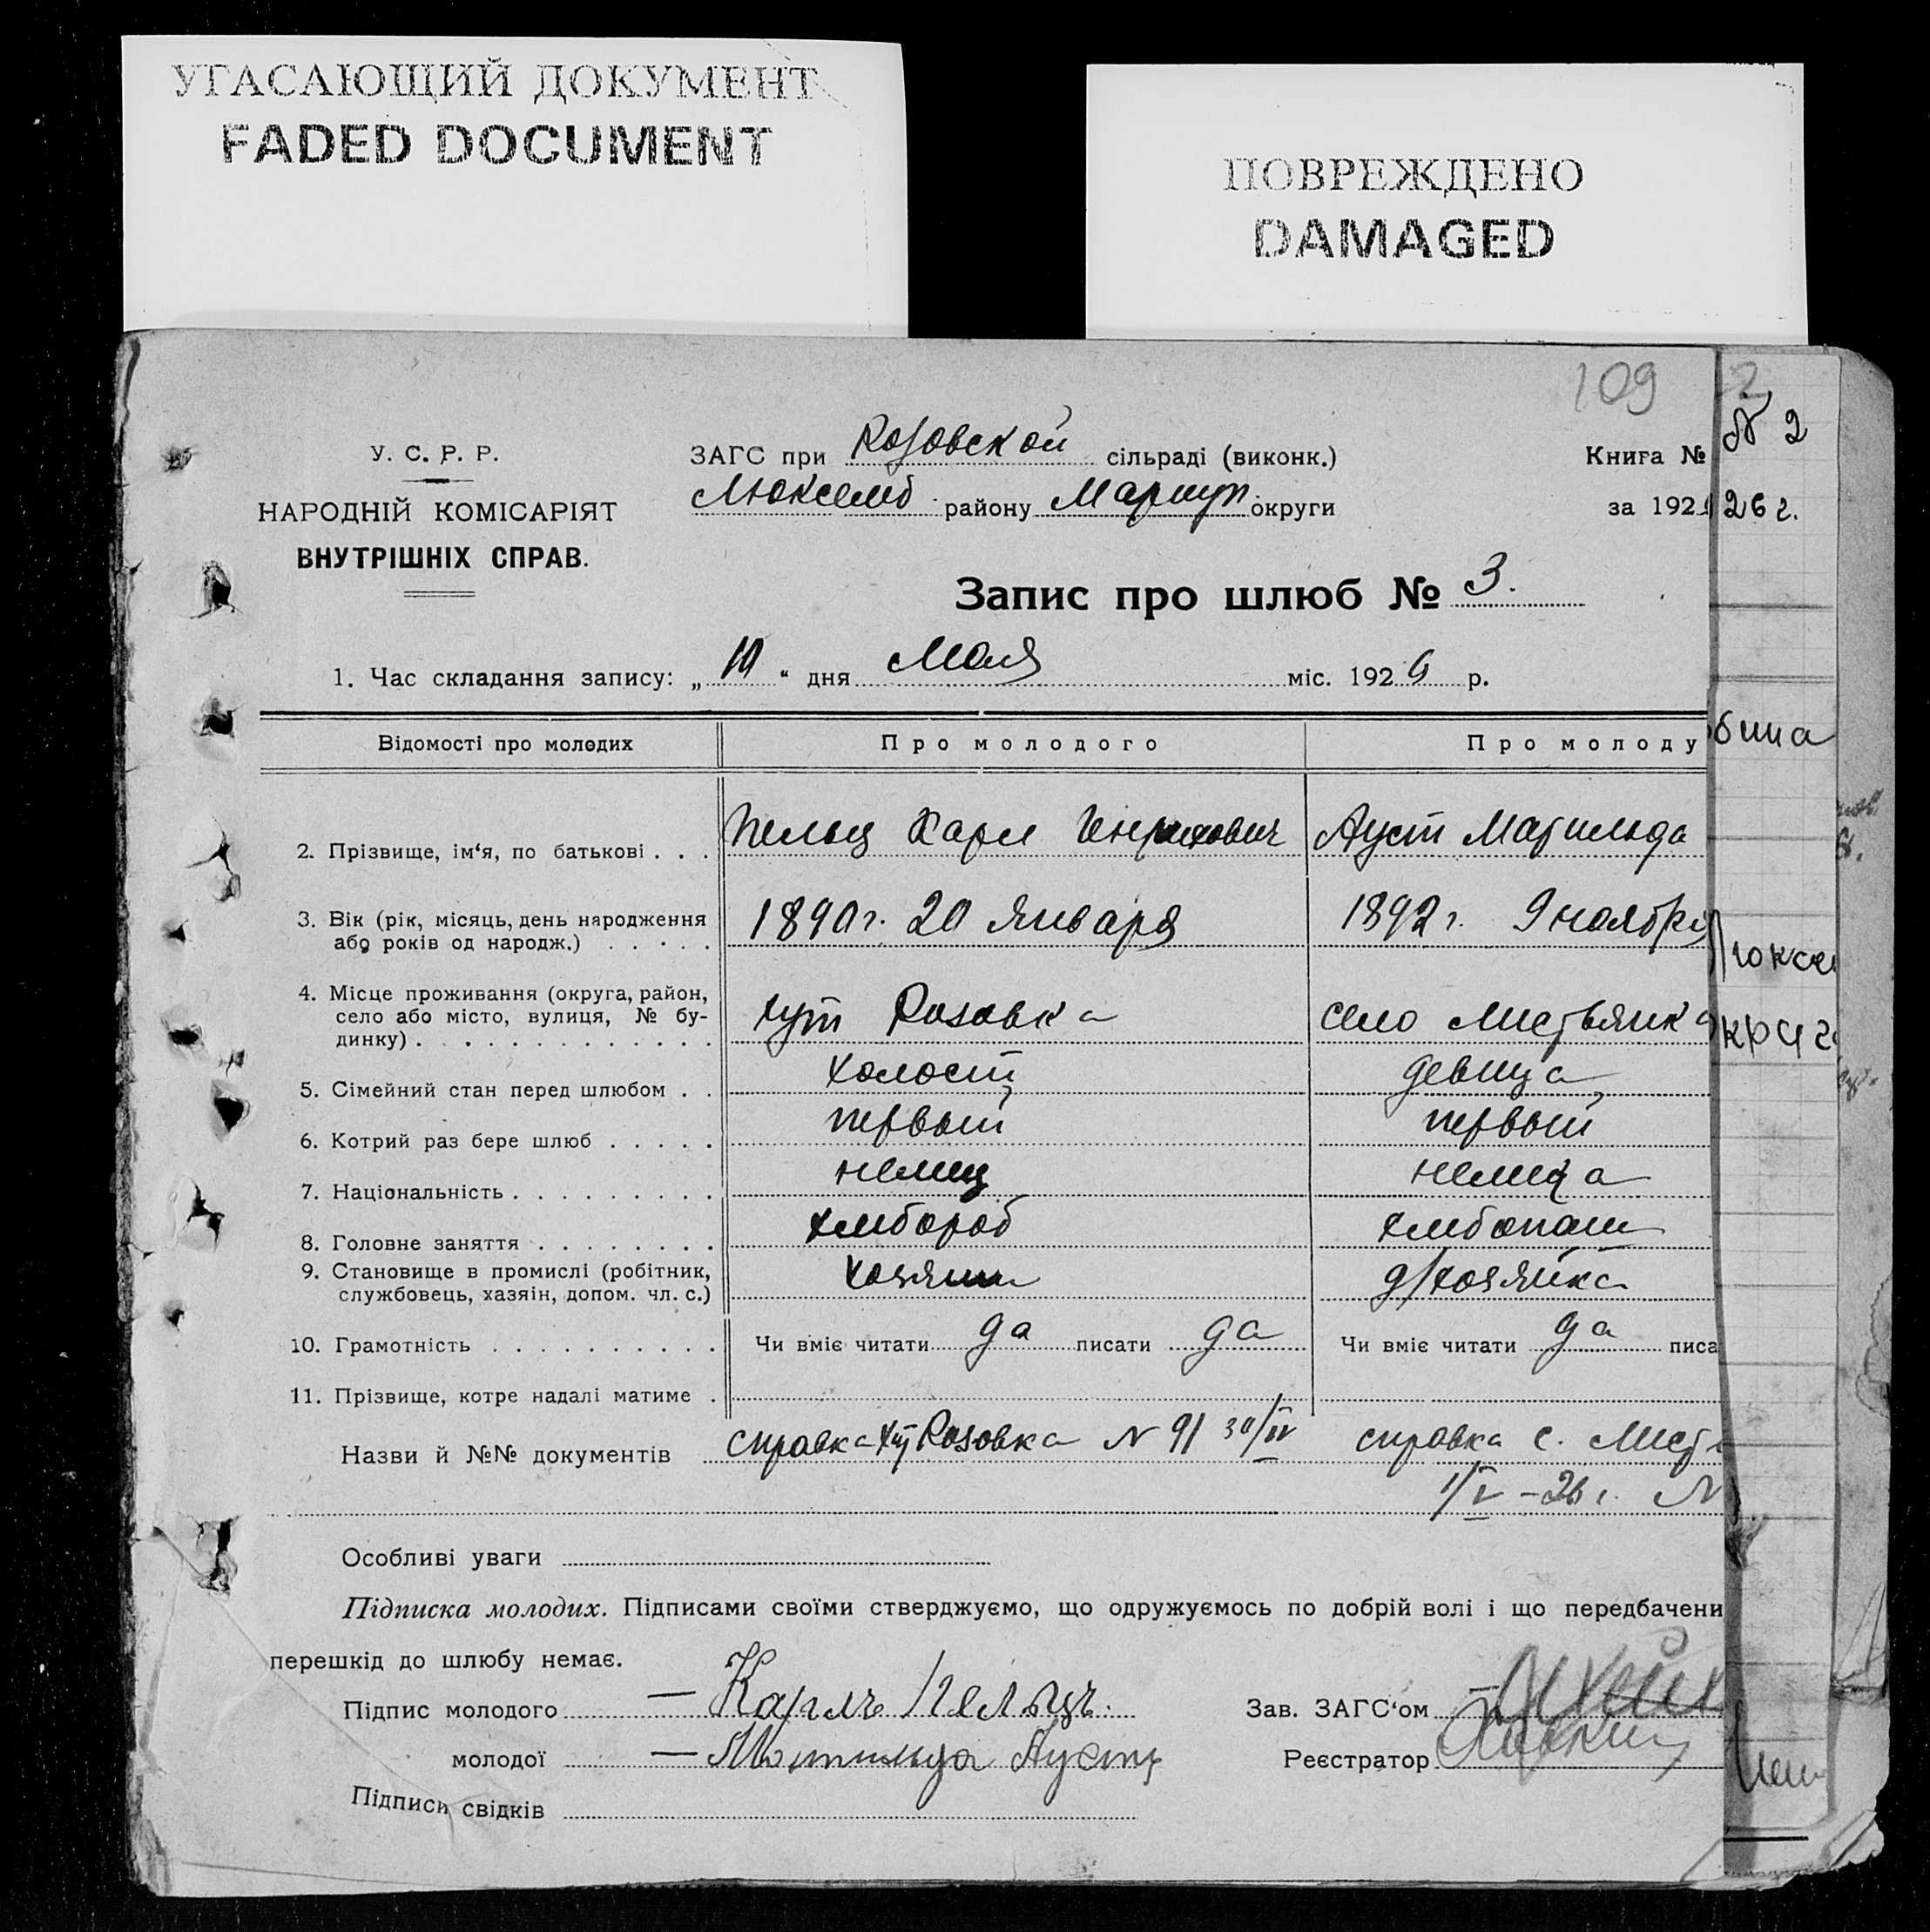 УГАСАЮЩИЙ ДОКУМЕНТ
FADED DOCUMENT
ПОВРЕЖДЕНО
DAMAGED
109
У. С. Р. Р.
НАРОДНІЙ КОМІСАРІЯТ
ВНУТРІШНІХ СПРАВ.
ЗАГС при Розовской сільраді (виконк.)
Люксемб. району Мариуп. округи
Книга №
за 192
N 2
26 г.
Запис про шлюб № 3.
1. Час складання запису: „ 10 “ дня Мая міс. 1926 р.
Відомості про молодих Про молодого Про молоду
2. Прізвище, ім‘я, по батькові . . . Пельц Карл Генрихович Ауст Матильда
3. Вік (рік, місяць, день народження
або років од народж.) . . . . . 1890 г. 20 Января 1892 г. 9 ноября
4. Місце проживання (округа, район,
село або місто, вулиця, № бу-
динку) . . . . . . . . . . . . . хут Розовка село Листвянка
5. Сімейний стан перед шлюбом . . холост девица
6. Котрий раз бере шлюб . . . . . первый первый
7. Національність . . . . . . . . . немец немка
8. Головне заняття . . . . . . . . хлебороб хлебопаш
9. Становище в промислі (робітник,
службовець, хазяін, допом. чл. с.) хозяин д/хозяйка
10. Грамотність . . . . . . . . . . Чи вміє читати да писати да Чи вміє читати да писа
11. Прізвище, котре надалі матиме .
Назви й №№ документів справка хут Розовка N 91 30/IV справка с. Лист
1/V – 26 г. N
Особливі уваги
Підписка молодих. Підписами своїми стверджуємо, що одружуємось по добрій волі і що передбачени
перешкід до шлюбу немає.
Підпис молодого — Карлъ Пельцъ. Зав. ЗАГС‘ом
молодої — Матильда Аустъ Реєстратор
Підписи свідків